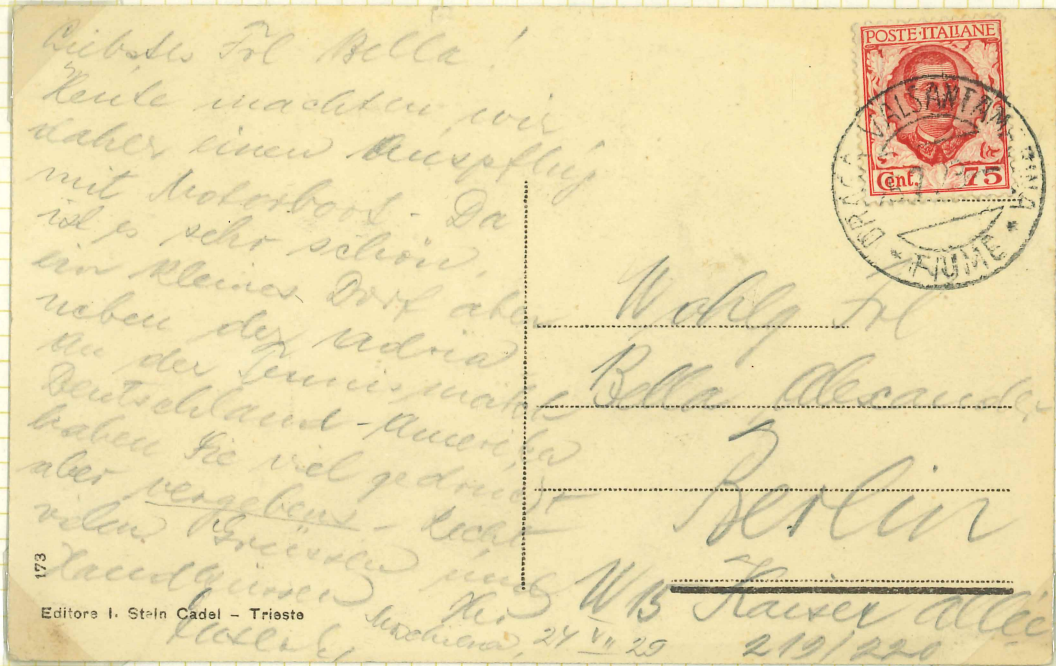 Liebstes Frl Bella!
Heute machten wir
daher einen Ausflug
mit Motorboot - Da
ist es sehr schön.
ein kleines Dorf aber
neben der Adria
An der Tennismatch
Deutschland - Amerika
haben Sie viel gedruckt
aber vergebens - Recht
vielen Grüssen und
Handküssen
Ihr
Moschiena, 24 VII 29
173
Editore I. Stein Cadel - Trieste
POSTE·ITALIANE
Cent. 75
DRAGA VALSANTAMARINA
* FIUME *
Wohlg Frl
Bella Alexander
Berlin
W 15 Kaiser allée
219/220